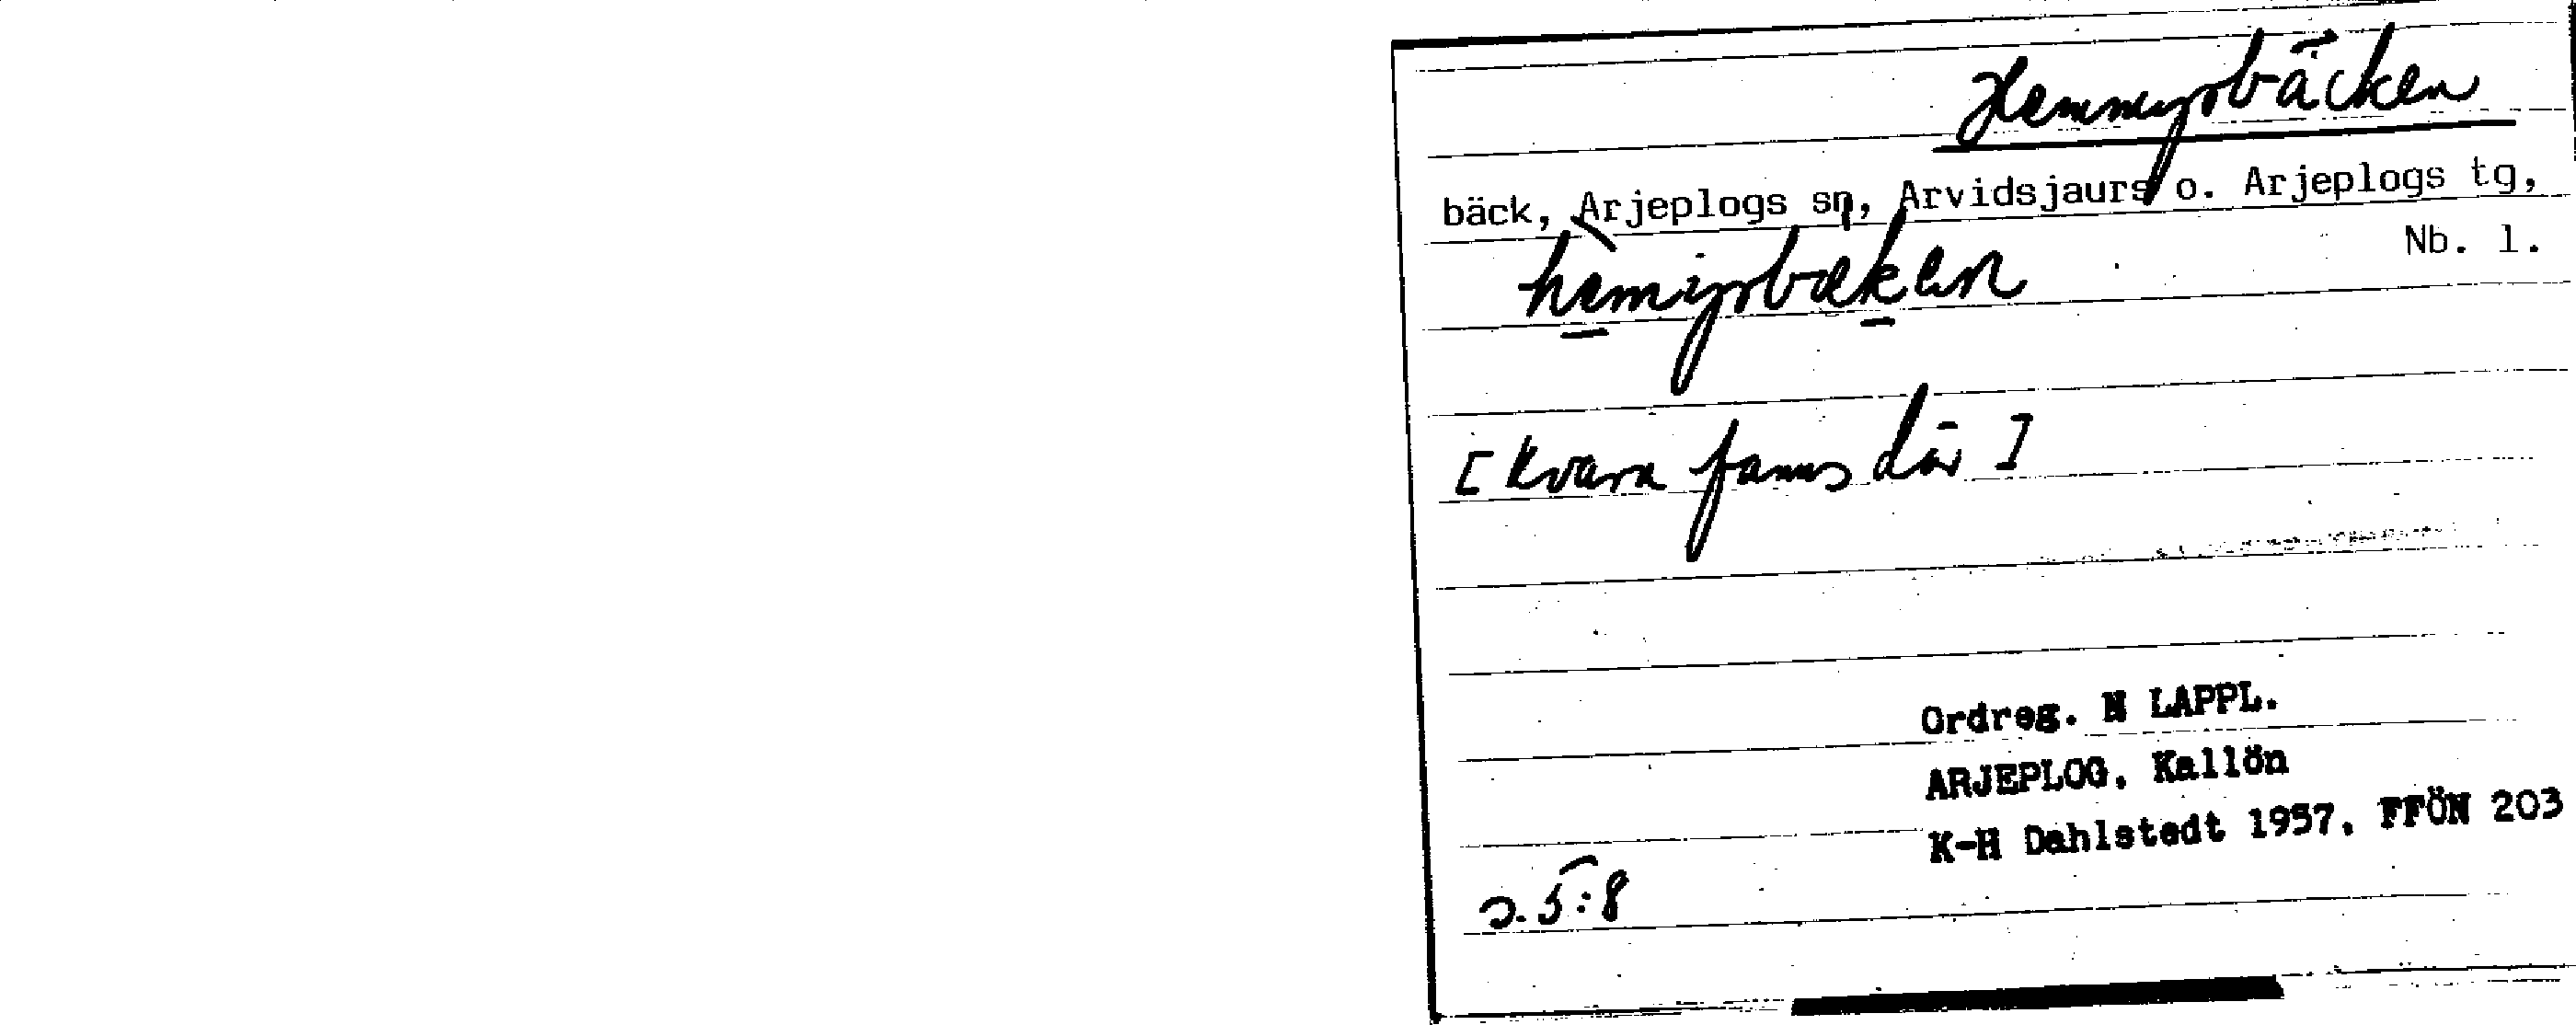 Hemmyrbäcken
bäck, Arjeplogs sn, Arvidsjaurs o. Arjeplogs tg,
Nb. l.
hèmyrbæken
[Kvarn fanns där]
Ordreg. N LAPPL.
ARJEPLOG, Kallön
K-H Dahlstedt 1957, FFÖN 203
s. 5:8